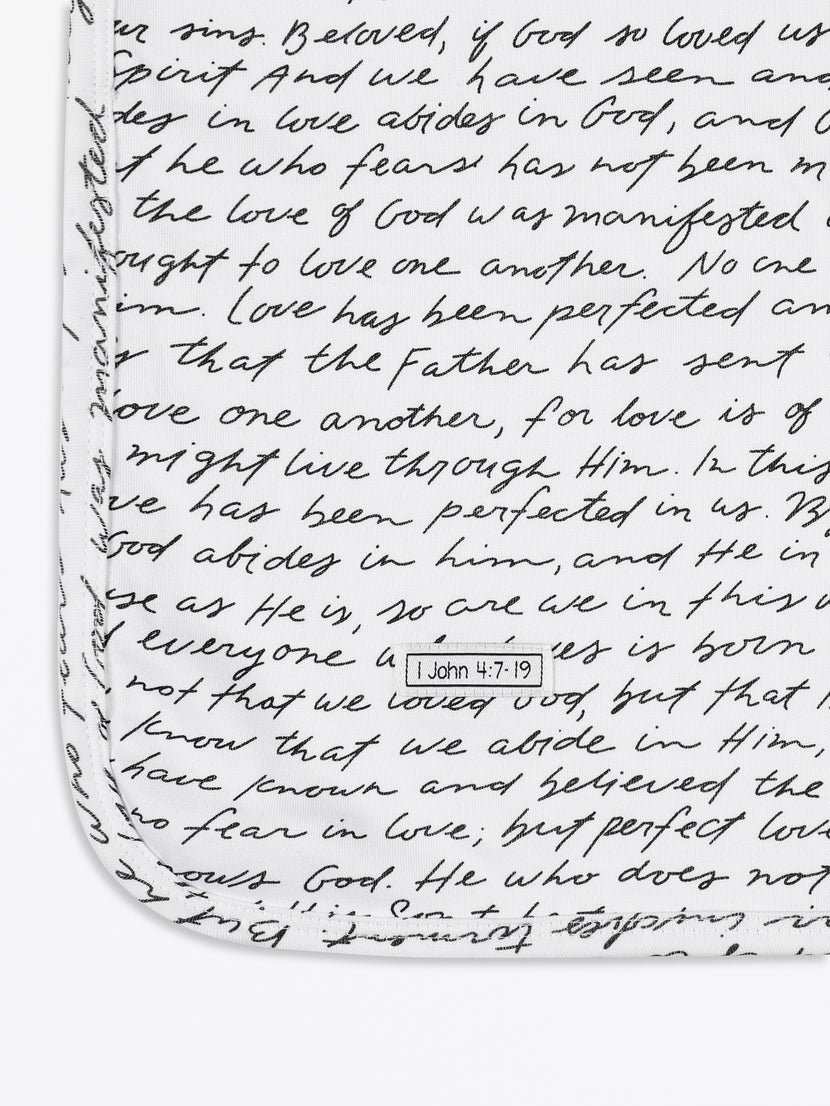 ur sins. Beloved, if God so loved us
Spirit And we have seen and
des in love abides in God, and G
t he who fears has not been m
the love of God was manifested
ought to love one another. No one
im. Love has been perfected am
is that the Father has sent
love one another, for love is of
might live through Him. In this
ve has been perfected in us. By
God abides in him, and He in
use as He is, so are we in this w
everyone w es is born
1 John 4:7-19
not that we loved God, but that
know that we abide in Him,
have known and believed the
no fear in love; but perfect love
nows God. He who does not
involves torment. But he who
God was manifested